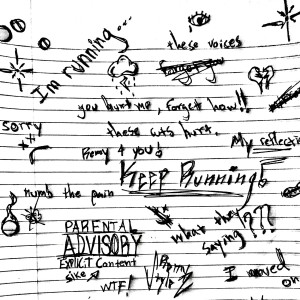 I'm running...
these voices
you hurt me, forget how!!
sorry
these cuts hurt.
Remy 4 you
My reflecti
Keep Running!
numb the pain
PARENTAL
ADVISORY
EXPLICIT Content
sike
WTF!
what they
saying???
I moved
on